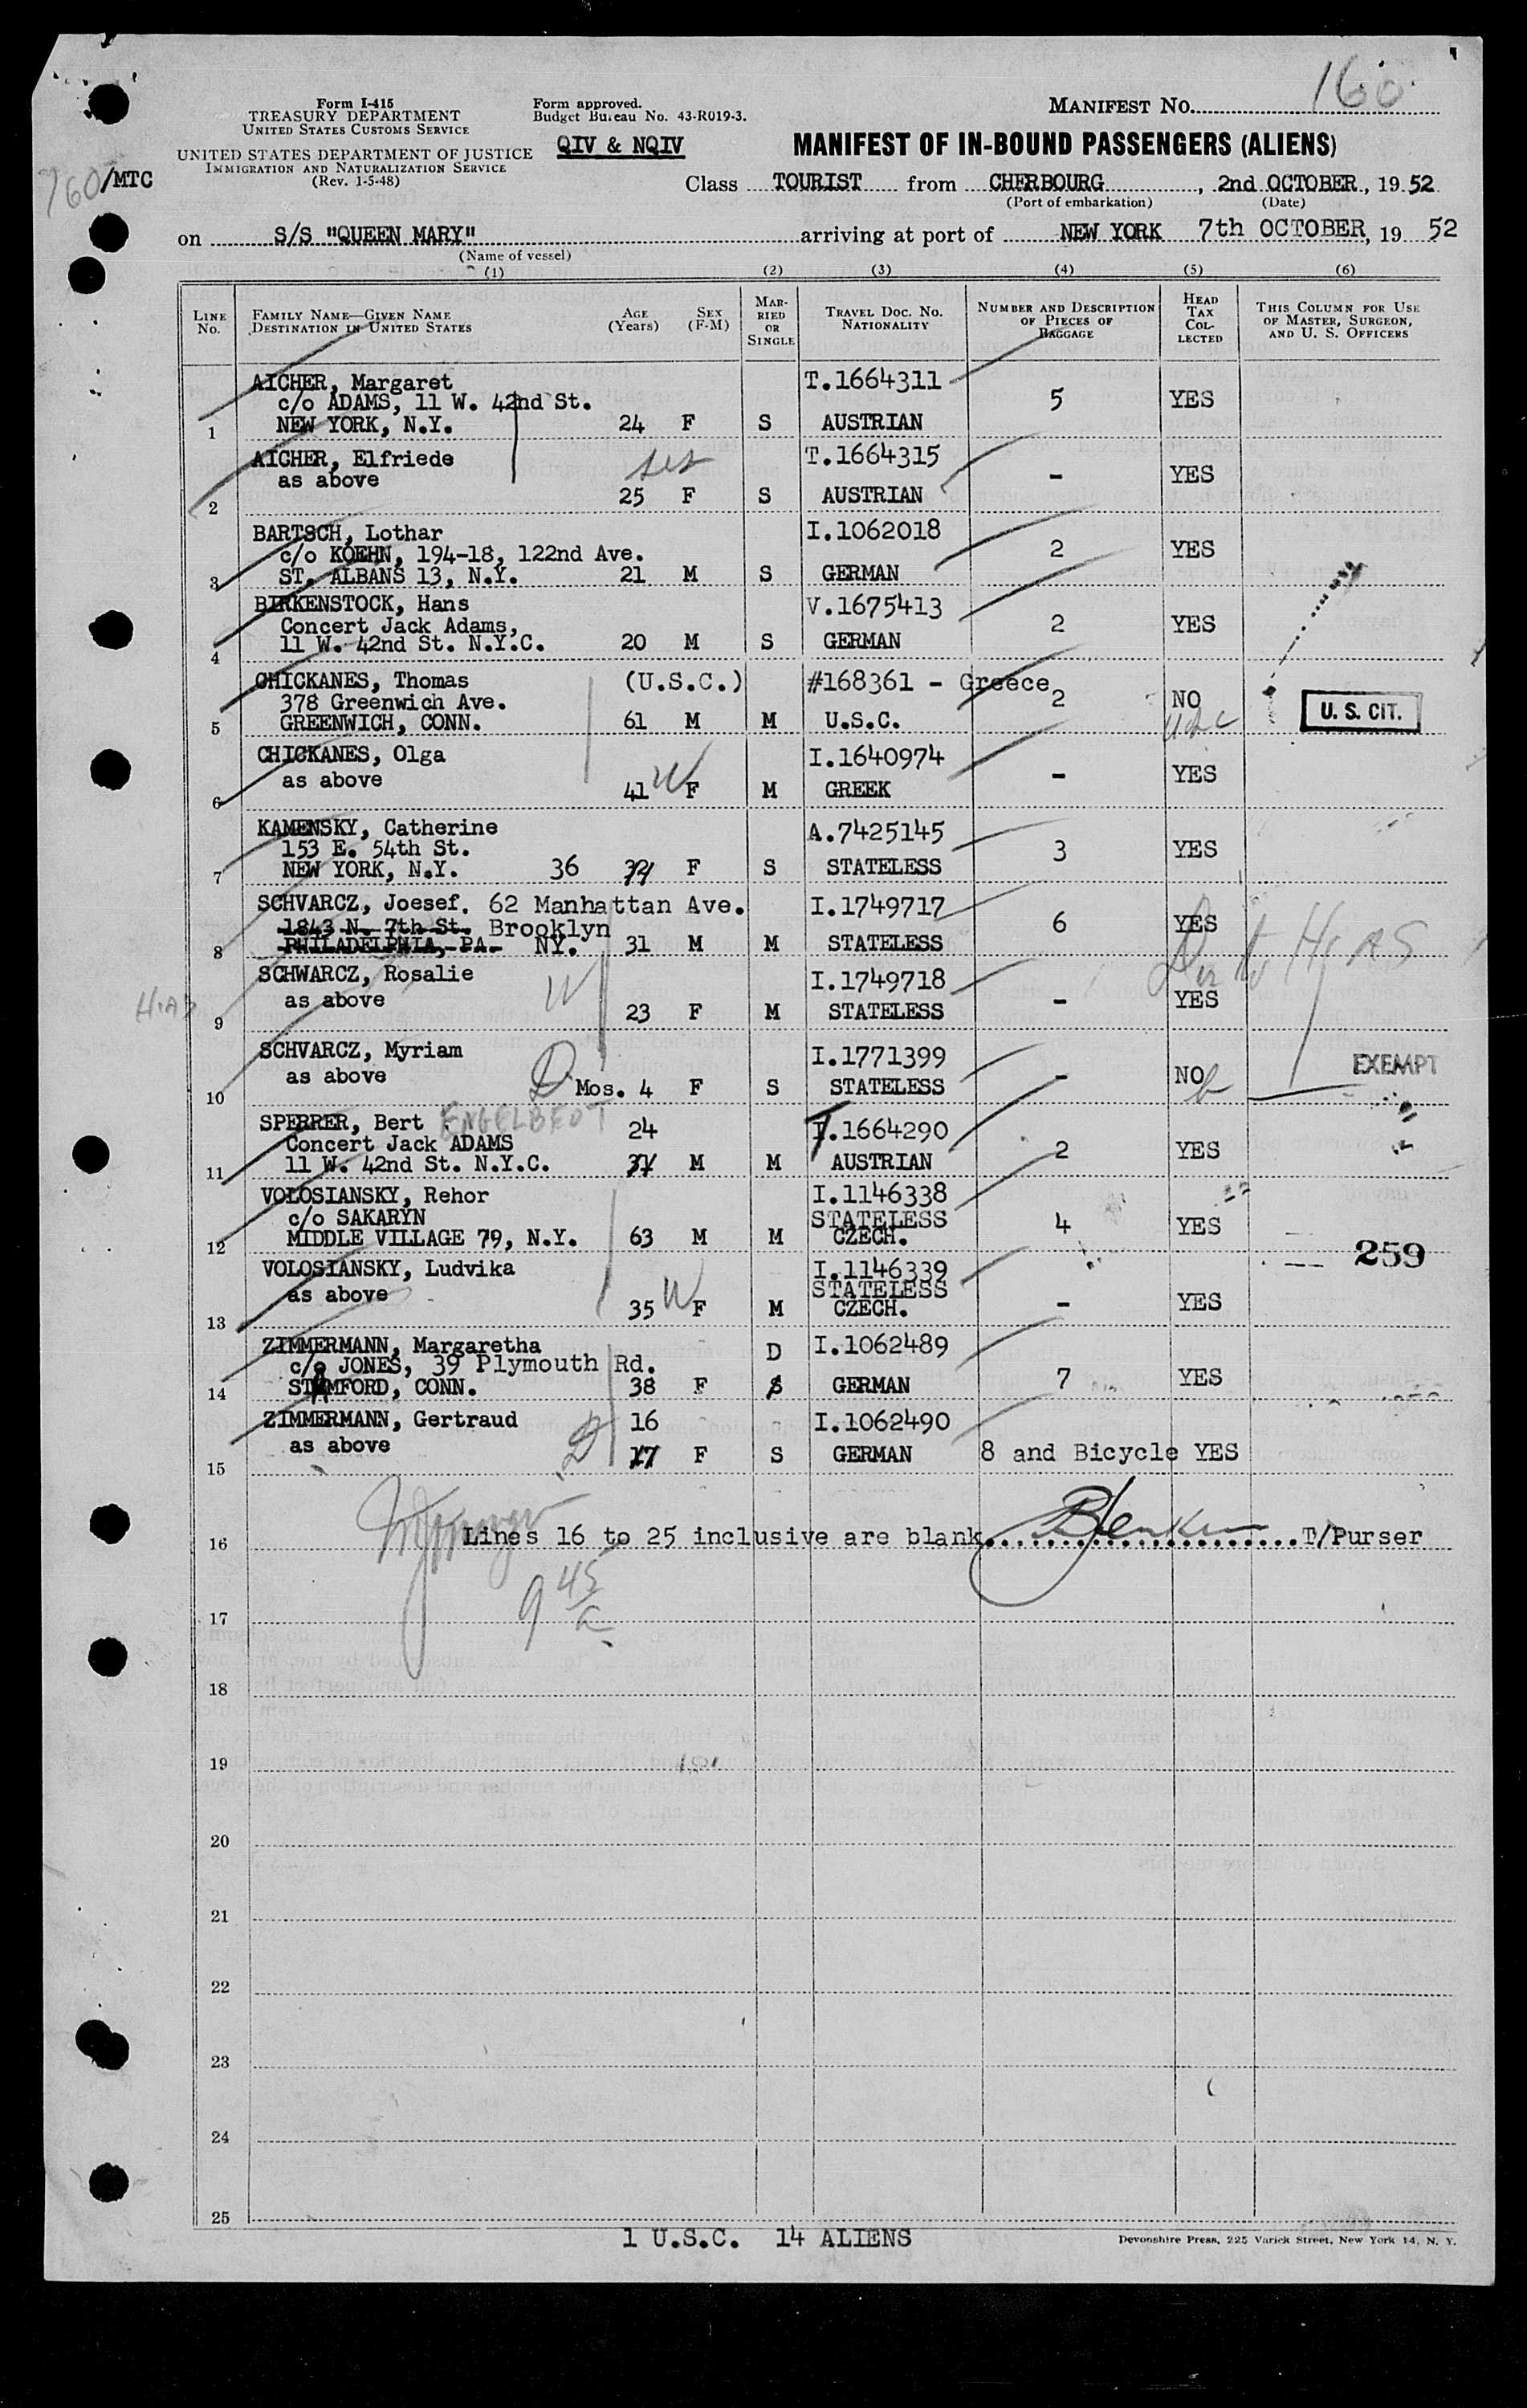 160
Form I-415
TREASURY DEPARTMENT
UNITED STATES CUSTOMS SERVICE
Form approved.
Budget Bureau No. 43-R019-3.
MANIFEST NO.
UNITED STATES DEPARTMENT OF JUSTICE
IMMIGRATION AND NATURALIZATION SERVICE
(Rev. 1-5-48)
QIV & NQIV
MANIFEST OF IN-BOUND PASSENGERS (ALIENS)
160/MTC
Class TOURIST from CHERBOURG, 2nd OCTOBER, 19 52
(Port of embarkation) (Date)
on S/S "QUEEN MARY" arriving at port of NEW YORK 7th OCTOBER, 19 52
(Name of vessel)
(1) (2) (3) (4) (5) (6)
LINE No. FAMILY NAME—GIVEN NAME DESTINATION IN UNITED STATES AGE (Years) SEX (F-M) MARRIED OR SINGLE TRAVEL DOC. NO. NATIONALITY NUMBER AND DESCRIPTION OF PIECES OF BAGGAGE HEAD TAX COLLECTED THIS COLUMN FOR USE OF MASTER, SURGEON, AND U. S. OFFICERS
AICHER, Margaret T.1664311
c/o ADAMS, 11 W. 42nd St. 5 YES
1 NEW YORK, N.Y. 24 F S AUSTRIAN
AICHER, Elfriede T.1664315
as above - YES
2 25 F S AUSTRIAN
BARTSCH, Lothar I.1062018
c/o KOEHN, 194-18, 122nd Ave. 2 YES
3 ST. ALBANS 13, N.Y. 21 M S GERMAN
BIRKENSTOCK, Hans V.1675413
Concert Jack Adams, 2 YES
4 11 W. 42nd St. N.Y.C. 20 M S GERMAN
CHICKANES, Thomas (U.S.C.) #168361 - Greece
378 Greenwich Ave. 2 NO
5 GREENWICH, CONN. 61 M M U.S.C. U.S. CIT.
CHICKANES, Olga I.1640974
as above - YES
6 41 W F M GREEK
KAMENSKY, Catherine A.7425145
153 E. 54th St. 3 YES
7 NEW YORK, N.Y. 36 F S STATELESS
SCHVARCZ, Joesef. 62 Manhattan Ave. I.1749717
1843 N. 7th St. Brooklyn 6 YES
8 PHILADELPHIA, PA. NY. 31 M M STATELESS
HIAS
SCHWARCZ, Rosalie I.1749718
as above W - YES
9 23 F M STATELESS
SCHVARCZ, Myriam I.1771399
as above - NO EXEMPT
10 D Mos. 4 F S STATELESS
SPERRER, Bert ENGELBERT 24 T.1664290
Concert Jack ADAMS 2 YES
11 11 W. 42nd St. N.Y.C. M M AUSTRIAN
VOLOSIANSKY, Rehor I.1146338
c/o SAKARYN STATELESS 4 YES
12 MIDDLE VILLAGE 79, N.Y. 63 M M CZECH.
259
VOLOSIANSKY, Ludvika I.1146339
as above STATELESS - YES
13 35 W F M CZECH.
ZIMMERMANN, Margaretha D I.1062489
c/o JONES, 39 Plymouth Rd. 7 YES
14 STAMFORD, CONN. 38 F S GERMAN
ZIMMERMANN, Gertraud 16 I.1062490
as above D 8 and Bicycle YES
15 17 F S GERMAN
16 Lines 16 to 25 inclusive are blank T/Purser
9 45 a
17
18
19
20
21
22
23
24
25
1 U.S.C. 14 ALIENS
Devonshire Press, 225 Varick Street, New York 14, N. Y.